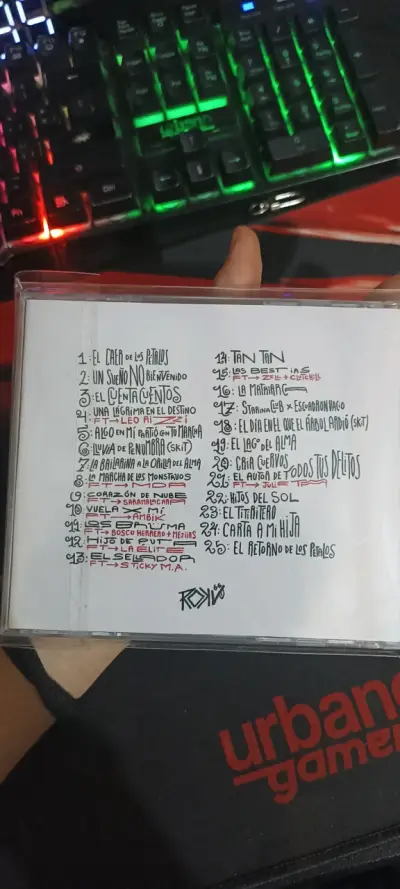 urbano
1: EL CAER DE LOS PÉTALOS
2: UN SUEÑO NO BIENVENIDO
3: EL CUENTA CUENTOS
4: UNA LÁGRIMA EN EL DESTINO
FT→ LEO RIZZI
5: ALGO EN MÍ PARTIÓ CON TU MARCHA
6: LLUVIA DE PENUMBRA (SKIT)
7: LA BAILARINA A LA ORILLA DEL ALMA
8: LA MARCHA DE LOS MONSTRUOS
FT→ MDA
9: CORAZÓN DE NUBE
FT→ SARAMALACARA
10: VUELA X MÍ
FT→ AMBIK
11: LOS
FT→ BOSCO HERRERO + MEJIAS
12: HIJO DE PUTA
FT→ LA ÉLITE
13: EL SELLADOR
FT→ STICKY M.A.
14: TAN TAN
15: LAS BESTIAS
FT→
16: LA MATRIARCA
17: STARINA CLUB X ESCUADRON VAGO
18: EL DÍA EN EL QUE EL ÁRBOL ARDIÓ (SKIT)
19: EL LAGO DEL ALMA
20: CRÍA CUERVOS
21: EL AUTOR DE TODOS TUS DELITOS
FT→
22: HIJOS DEL SOL
23: EL TITIRITERO
24: CARTA A MI HIJA
25: EL RETORNO DE LOS PÉTALOS
urbano
gamer